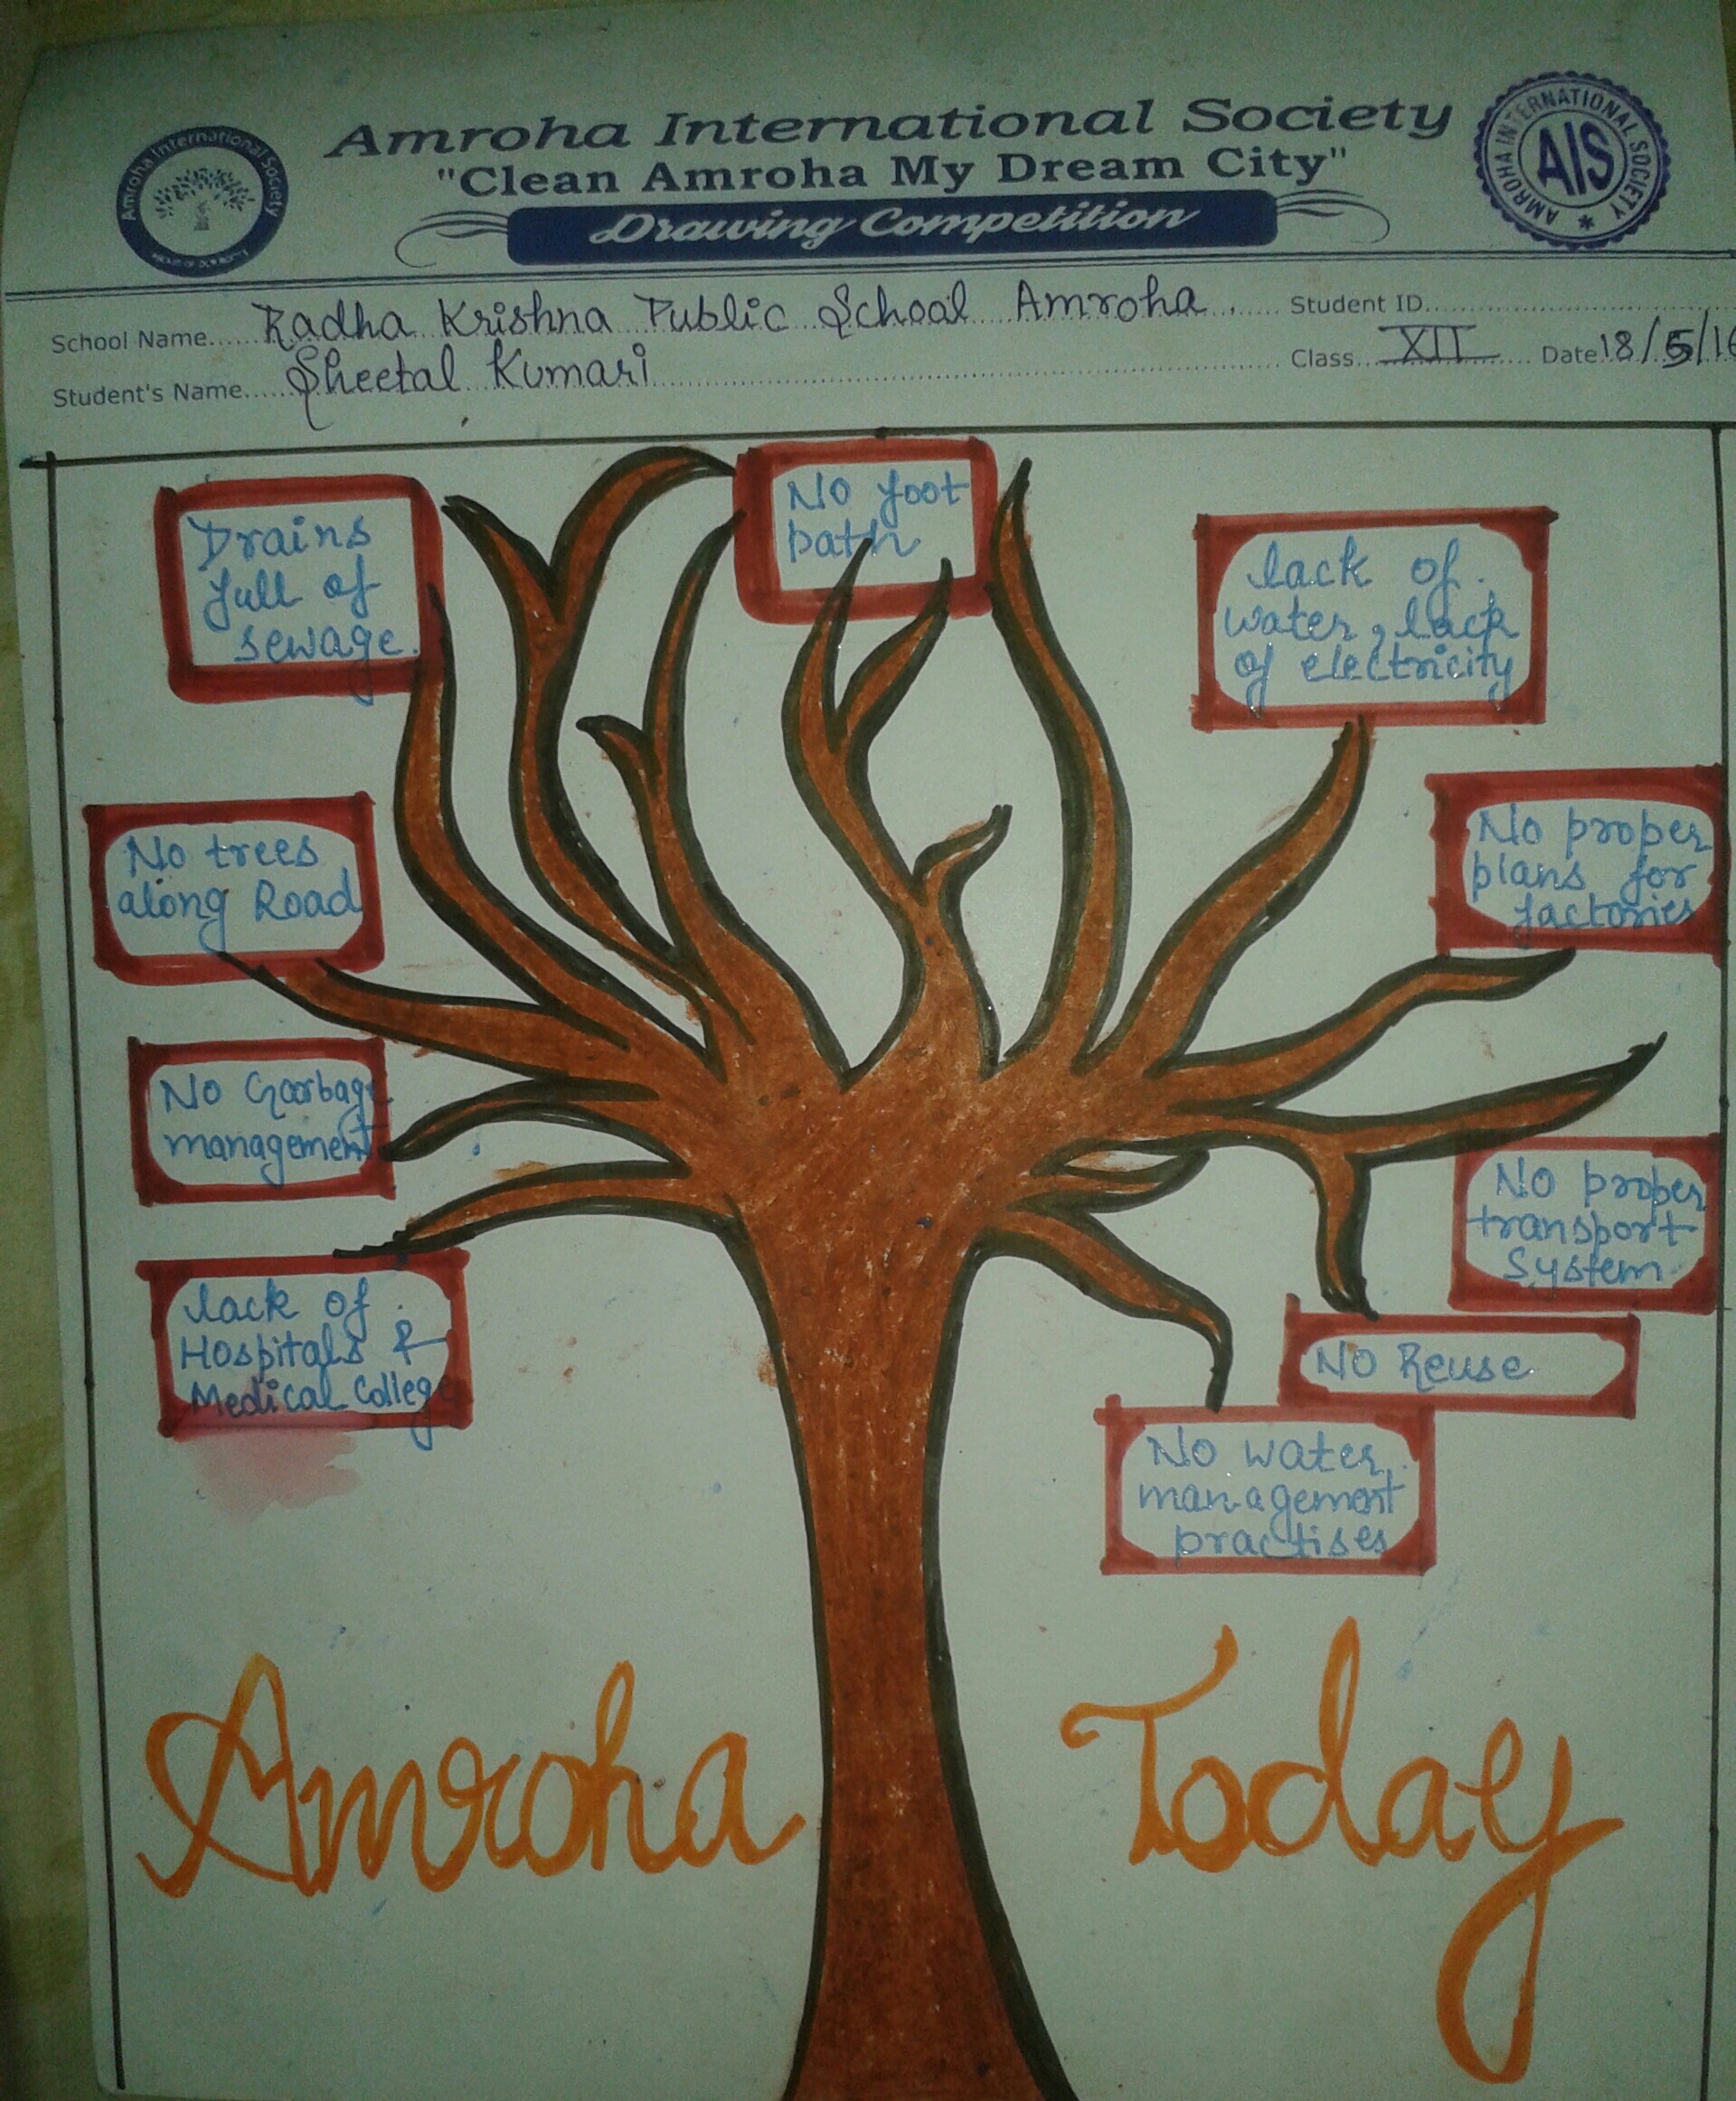 Amroha International Society
"Clean Amroha My Dream City"
Drawing Competition
Amroha International Society
AMROHA INTERNATIONAL SOCIETY
AIS
School Name Radha Krishna Public School Amroha Student ID
Student's Name Sheetal Kumari Class XII Date 18/5/16
Drains
full of
sewage.
No foot
path
lack of
water, lack
of electricity
No trees
along Road
No proper
plans for
factories
No Garbage
management
No proper
transport
System
lack of
Hospitals &
Medical College
No Reuse
No water
management
practises
Amroha Today